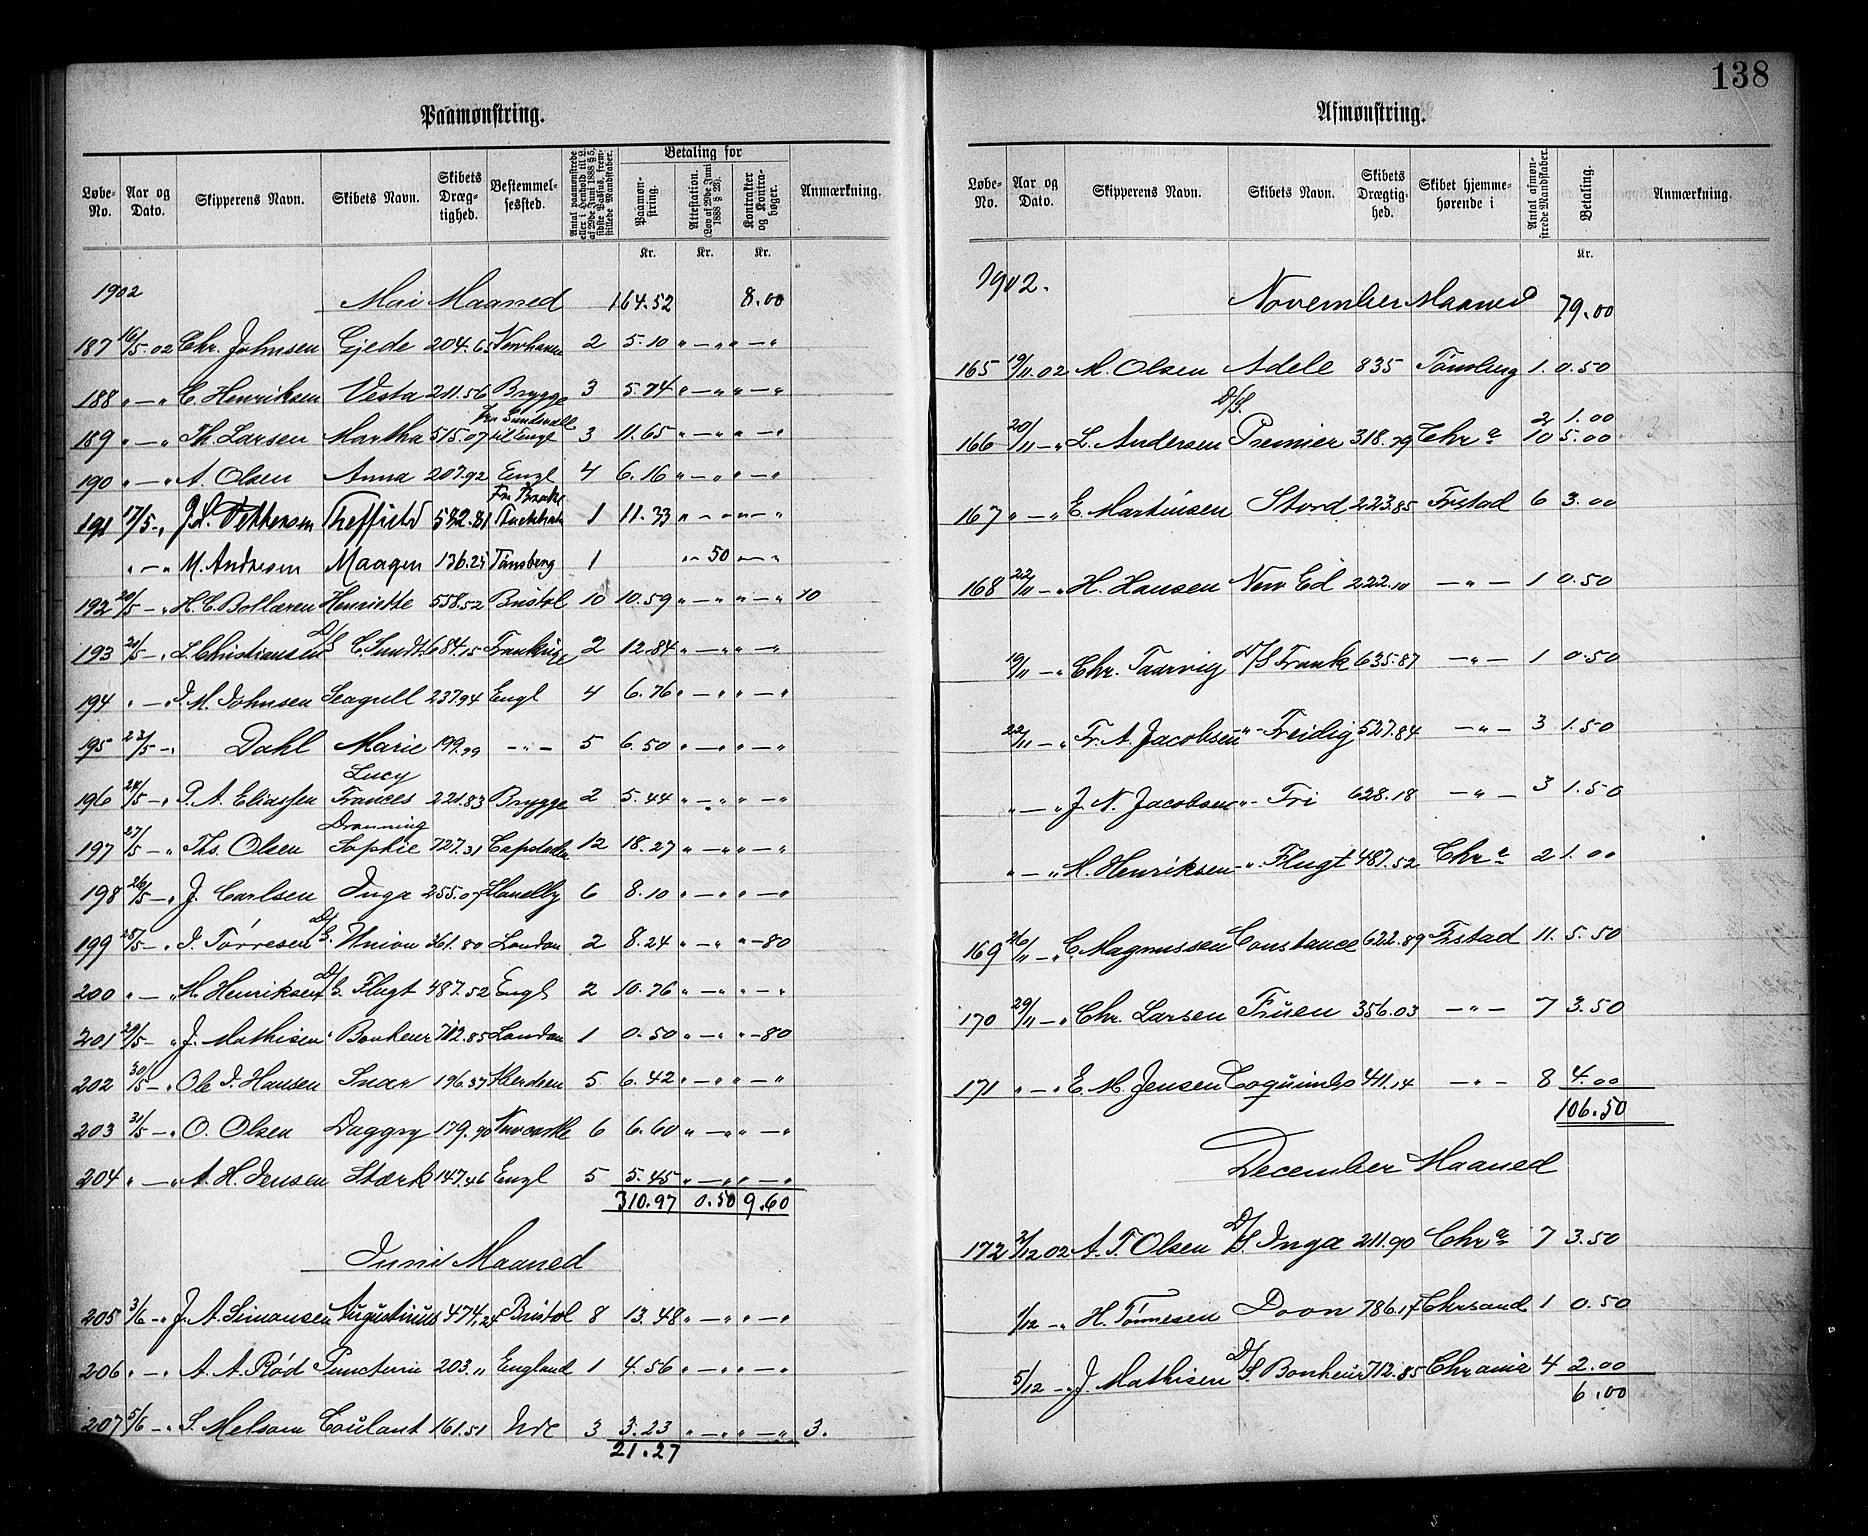 138
Paamønstring.
Løbe-No. Aar og Dato. Skippers Navn. Skibets Navn. Skibets Dræg-tighed. Bestemmel-sessted. Antal paamønstrede eller i Henhold til Lov af 29de Juni 1888 § 5, sidste Passus, frem-stillede Mandskaber. Betaling for Paamøn-string. Attestation. (Lov af 29de Juni 1888 § 23). Kontrakter og Kontra-bøger. Anmærkning.
Kr. Kr. Kr.
1902 Mai Maaned 164.52 8.00
187 16/5.02 Chr. Johnsen Gjede 204.65 Newhaven 2 5.10 " — " " — "
188 " — " C. Henriksen Vesta 211.56 Brygge 3 5.74 " — " " — "
189 " — " Th. Larsen Martha 515.07 fra Sundsvall til Engl 3 11.65 " — " " — "
190 " — " A. Olsen Anna 207.92 Engl 4 6.16 " — " " — "
191 17/5 - " Pettersen Sheffield 582.81 Fra Brake 1 11.33 " — " " — "
" — " M. Andresen Maagen 136.25 Tønsberg 1 " — 50 " — "
192 20/5 — " H. C. Bollæren Henriette 558.52 Bristol 10 10.59 " — " " — " 10
193 21/5 — " L. Christiansen D/S C. Sundt 684.15 Frankrige 2 12.84 " — " " — "
194 " — " J. M. Johnsen Seagull 237.94 Engl 4 6.76 " — " " — "
195 23/5 — " Dahl Marie 199.99 — " — 5 6.50 " — " " — "
196 24/5 — " P. A. Eliassen Lucy Frances 221.83 Brygge 2 5.44 " — " " — "
197 27/5 — " Ths. Olsen Dronning Sophie 727.31 Capstaden 12 18.27 " — " " — "
198 26/5 — " J. Carlsen Inga 255.07 Llanelly 6 8.10 " — " " — "
199 28/5 — " J. Tørresen D/S. Union 361.80 London 2 8.24 " — " " — 80
200 " — " H. Henriksen D/S. Flugt 487.52 Engl 2 10.76 " — " " — "
201 29/5 - " J. Mathisen " Bonheur 712.85 London 1 0.50 " — " " — 80
202 30/5 — " Ole J. Hansen Snar 196.37 Aberdeen 5 6.42 " — " " — "
203 31/5 — " O. Olsen Daggry 179.90 Newcastle 6 6.60 " — " " — "
204 " — " A. H. Jensen Stærk 147.46 Engl 5 5.45 " — " " — "
310.97 0.50 9.60
Juni Maaned
205 3/6 — " J. A. Simonsen Augustinus 474.24 Bristol 8 13.48 " — " " — "
206 " — " A. A. Rød Punctum 203. " England 1 4.56 " — " " — "
207 5/6 — " S. Melsom Coulant 161.51 3 3.23 " — " " — " 3.
21.27
Afmønstring.
Løbe-No. Aar og Dato. Skipperens Navn. Skibets Navn. Skibets Drægtig-hed. Skibet hjemme-hørende i Antal afmøn-strede Mandskaber. Betaling. Anmærkning.
Kr.
1902. November Maaned 79.00
165 19/11.02 M. Olsen Adele 835 Tønsberg 1. 0.50
2 1.00
166 20/11 — " L. Andersen D/S. Premier 318.79 Chra 10 5.00
167 " — " E. Martinsen Stord 223.85 Frstad 6 3.00
168 22/11 — " H. Hansen New Ed 222.10 — " — 1 0.50
19/11 — " Chr. Taarvig D/S Frank 635.87 — " — 1 0.50
22/11 — " Fr. A. Jacobsen " - Freidig 527.84 — " — 3 1.50
" — " J. N. Jacobsen " - Fri 628.18 — " — 3 1.50
" — " H. Henriksen - " Flugt 487.52 Chra 2 1.00
169 26/11 — " C. Magnussen Constance 622.89 Frstad 11. 5.50
170 29/11 — " Chr. Larsen Fruen 356.03 — " — 7 3.50
171 " — " E. M. Jensen Coquimbo 411.14 — " — 8 4.00
106.50
December Maaned
172 2/12 02 A. T. Olsen D/S Inga 211.90 Chra 7 3.50
1/12 — " H. Tønnesen Doon 786.17 Chrsand 1 0.50
5/12 — " J. Mathisen D/S. Bonheur 712.85 Chrania 4 2.00
6.00